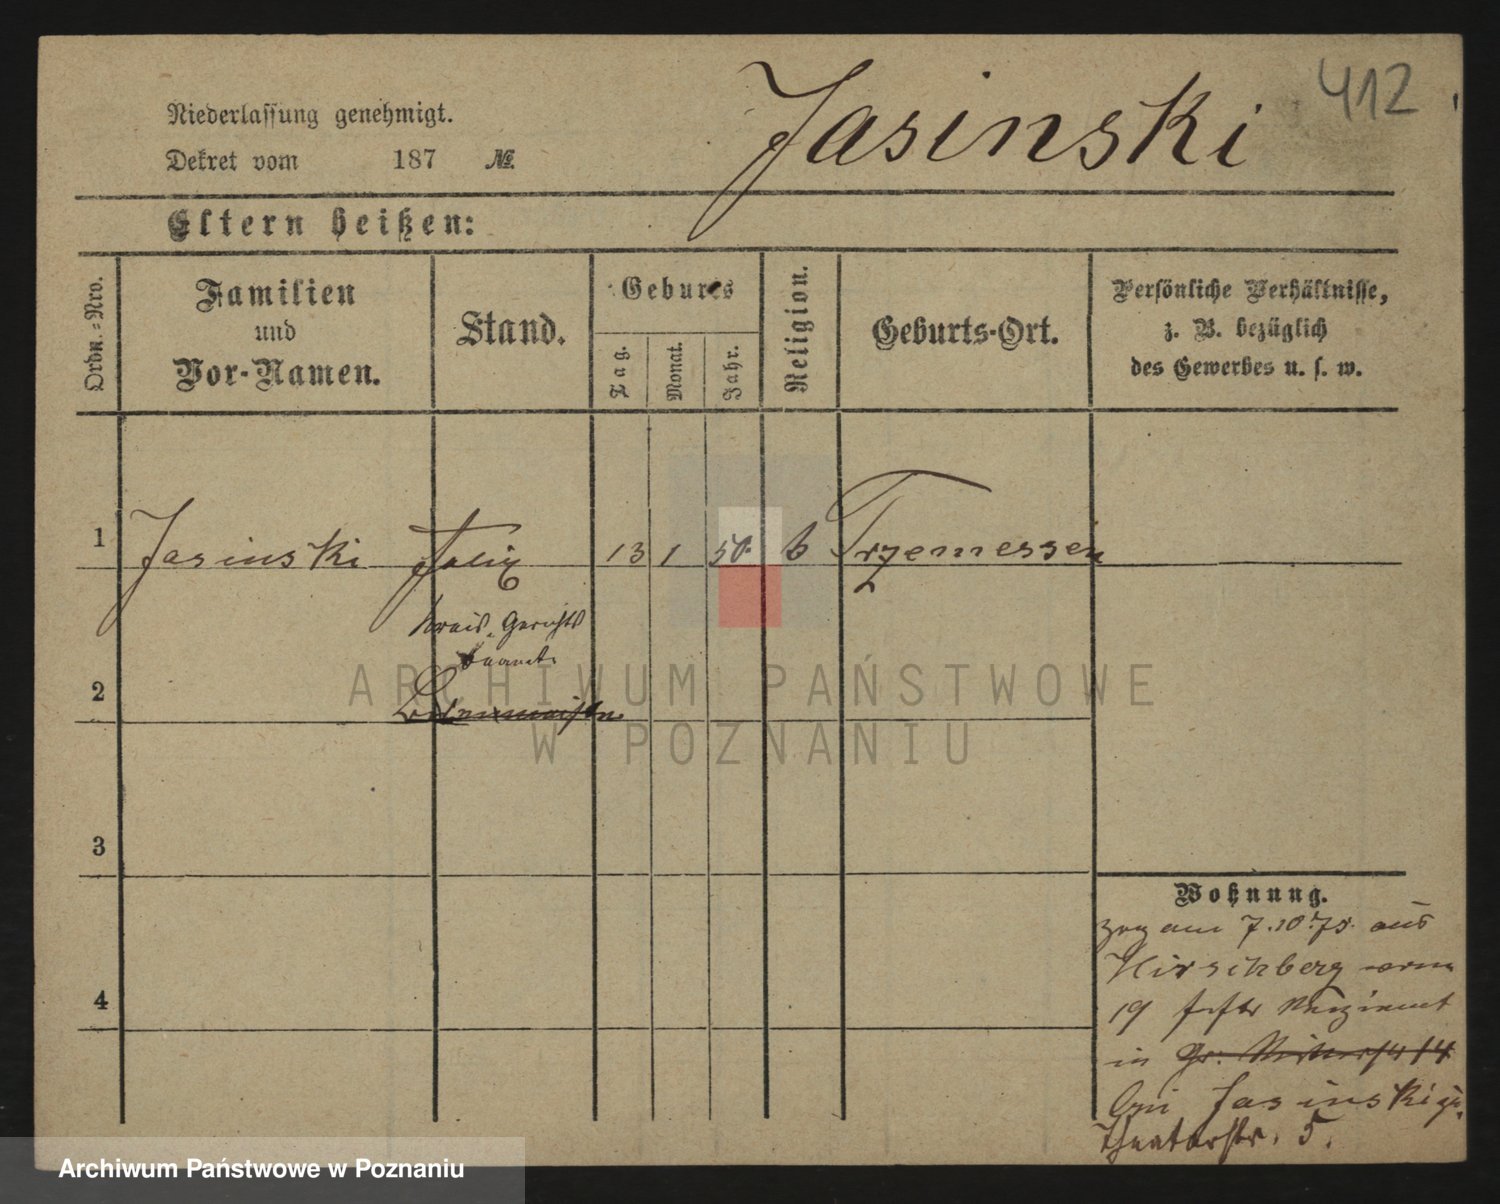 412
Jasinski
Niederlassung genehmigt.
Dekret vom 187 №
Eltern heißen:
Ordn.-Nro.
Familien und Vor-Namen.
Stand.
Geburts
Tag.
Monat.
Jahr.
Religion.
Geburts-Ort.
Persönliche Verhältnisse,
z. B. bezüglich
des Gewerbes u. s. w.
1 Jasinski Felix 13 1 50 k Trzemessen
Kreis-Gerichts
2
3
4
Wohnung.
zog am 7.10.75. aus
Hirschberg vom
19 Regiment
in Gr. Ritterstr 14
bei Jasinski
Theaterstr. 5.
ARCHIWUM PAŃSTWOWE
W POZNANIU
Archiwum Państwowe w Poznaniu